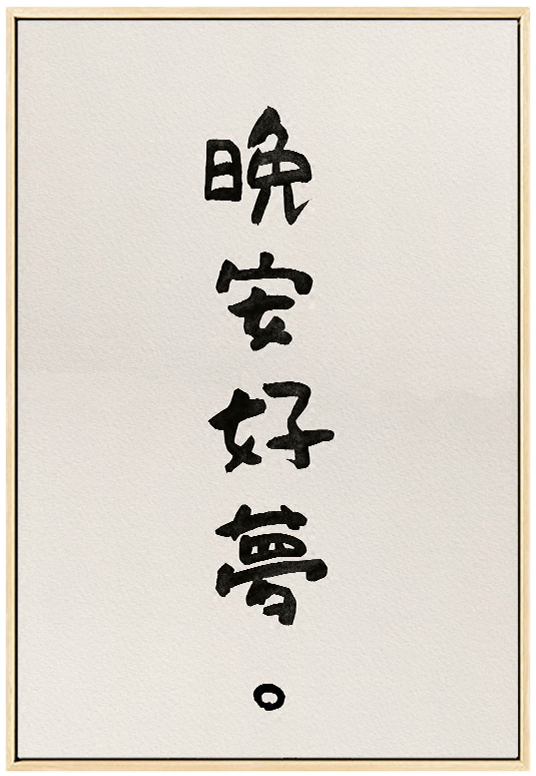 晚安好夢。